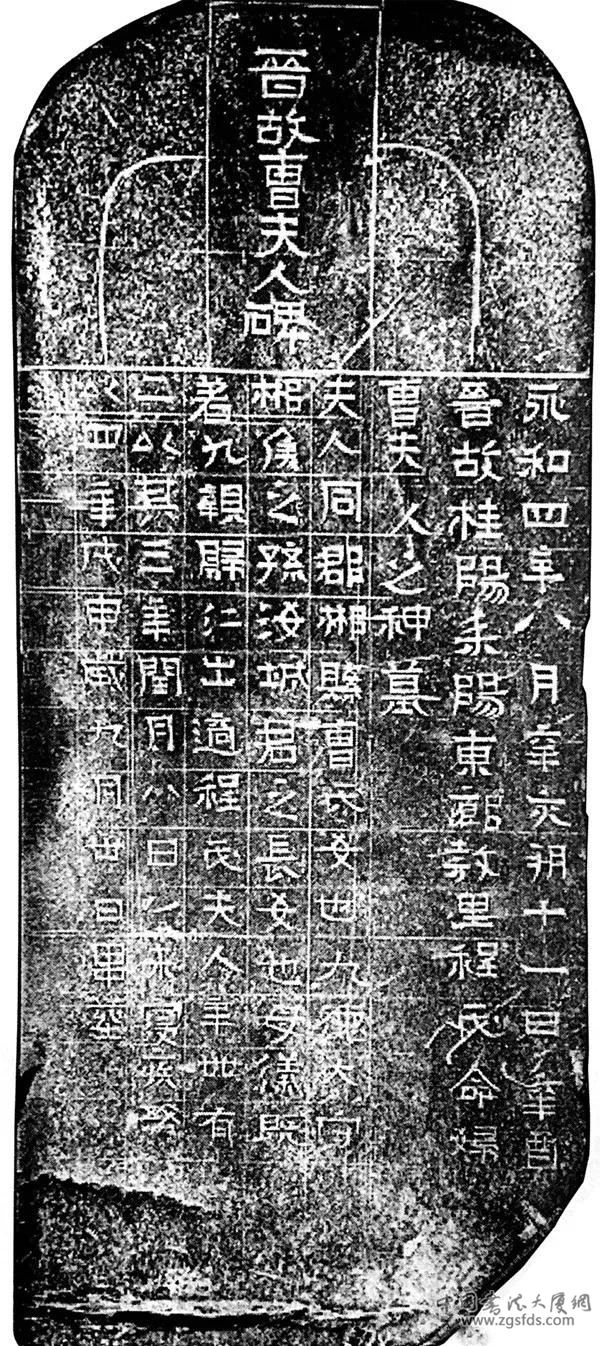 晉故曹夫人碑
永和四年八月辛亥朔十一日辛酉
晉故桂陽耒陽東鄉敎里程氏命婦
曹夫人之神墓
夫人同郡郴縣曹氏女也九真太守
郴侯之孫汝城君之長女也母儀既
著九親歸仁出適程氏夫人年卅有
二以其三年閏月八日乙未寢疾終
以四年戊申歲九月廿日畢
中国書法大廈網
www.zgsfds.com